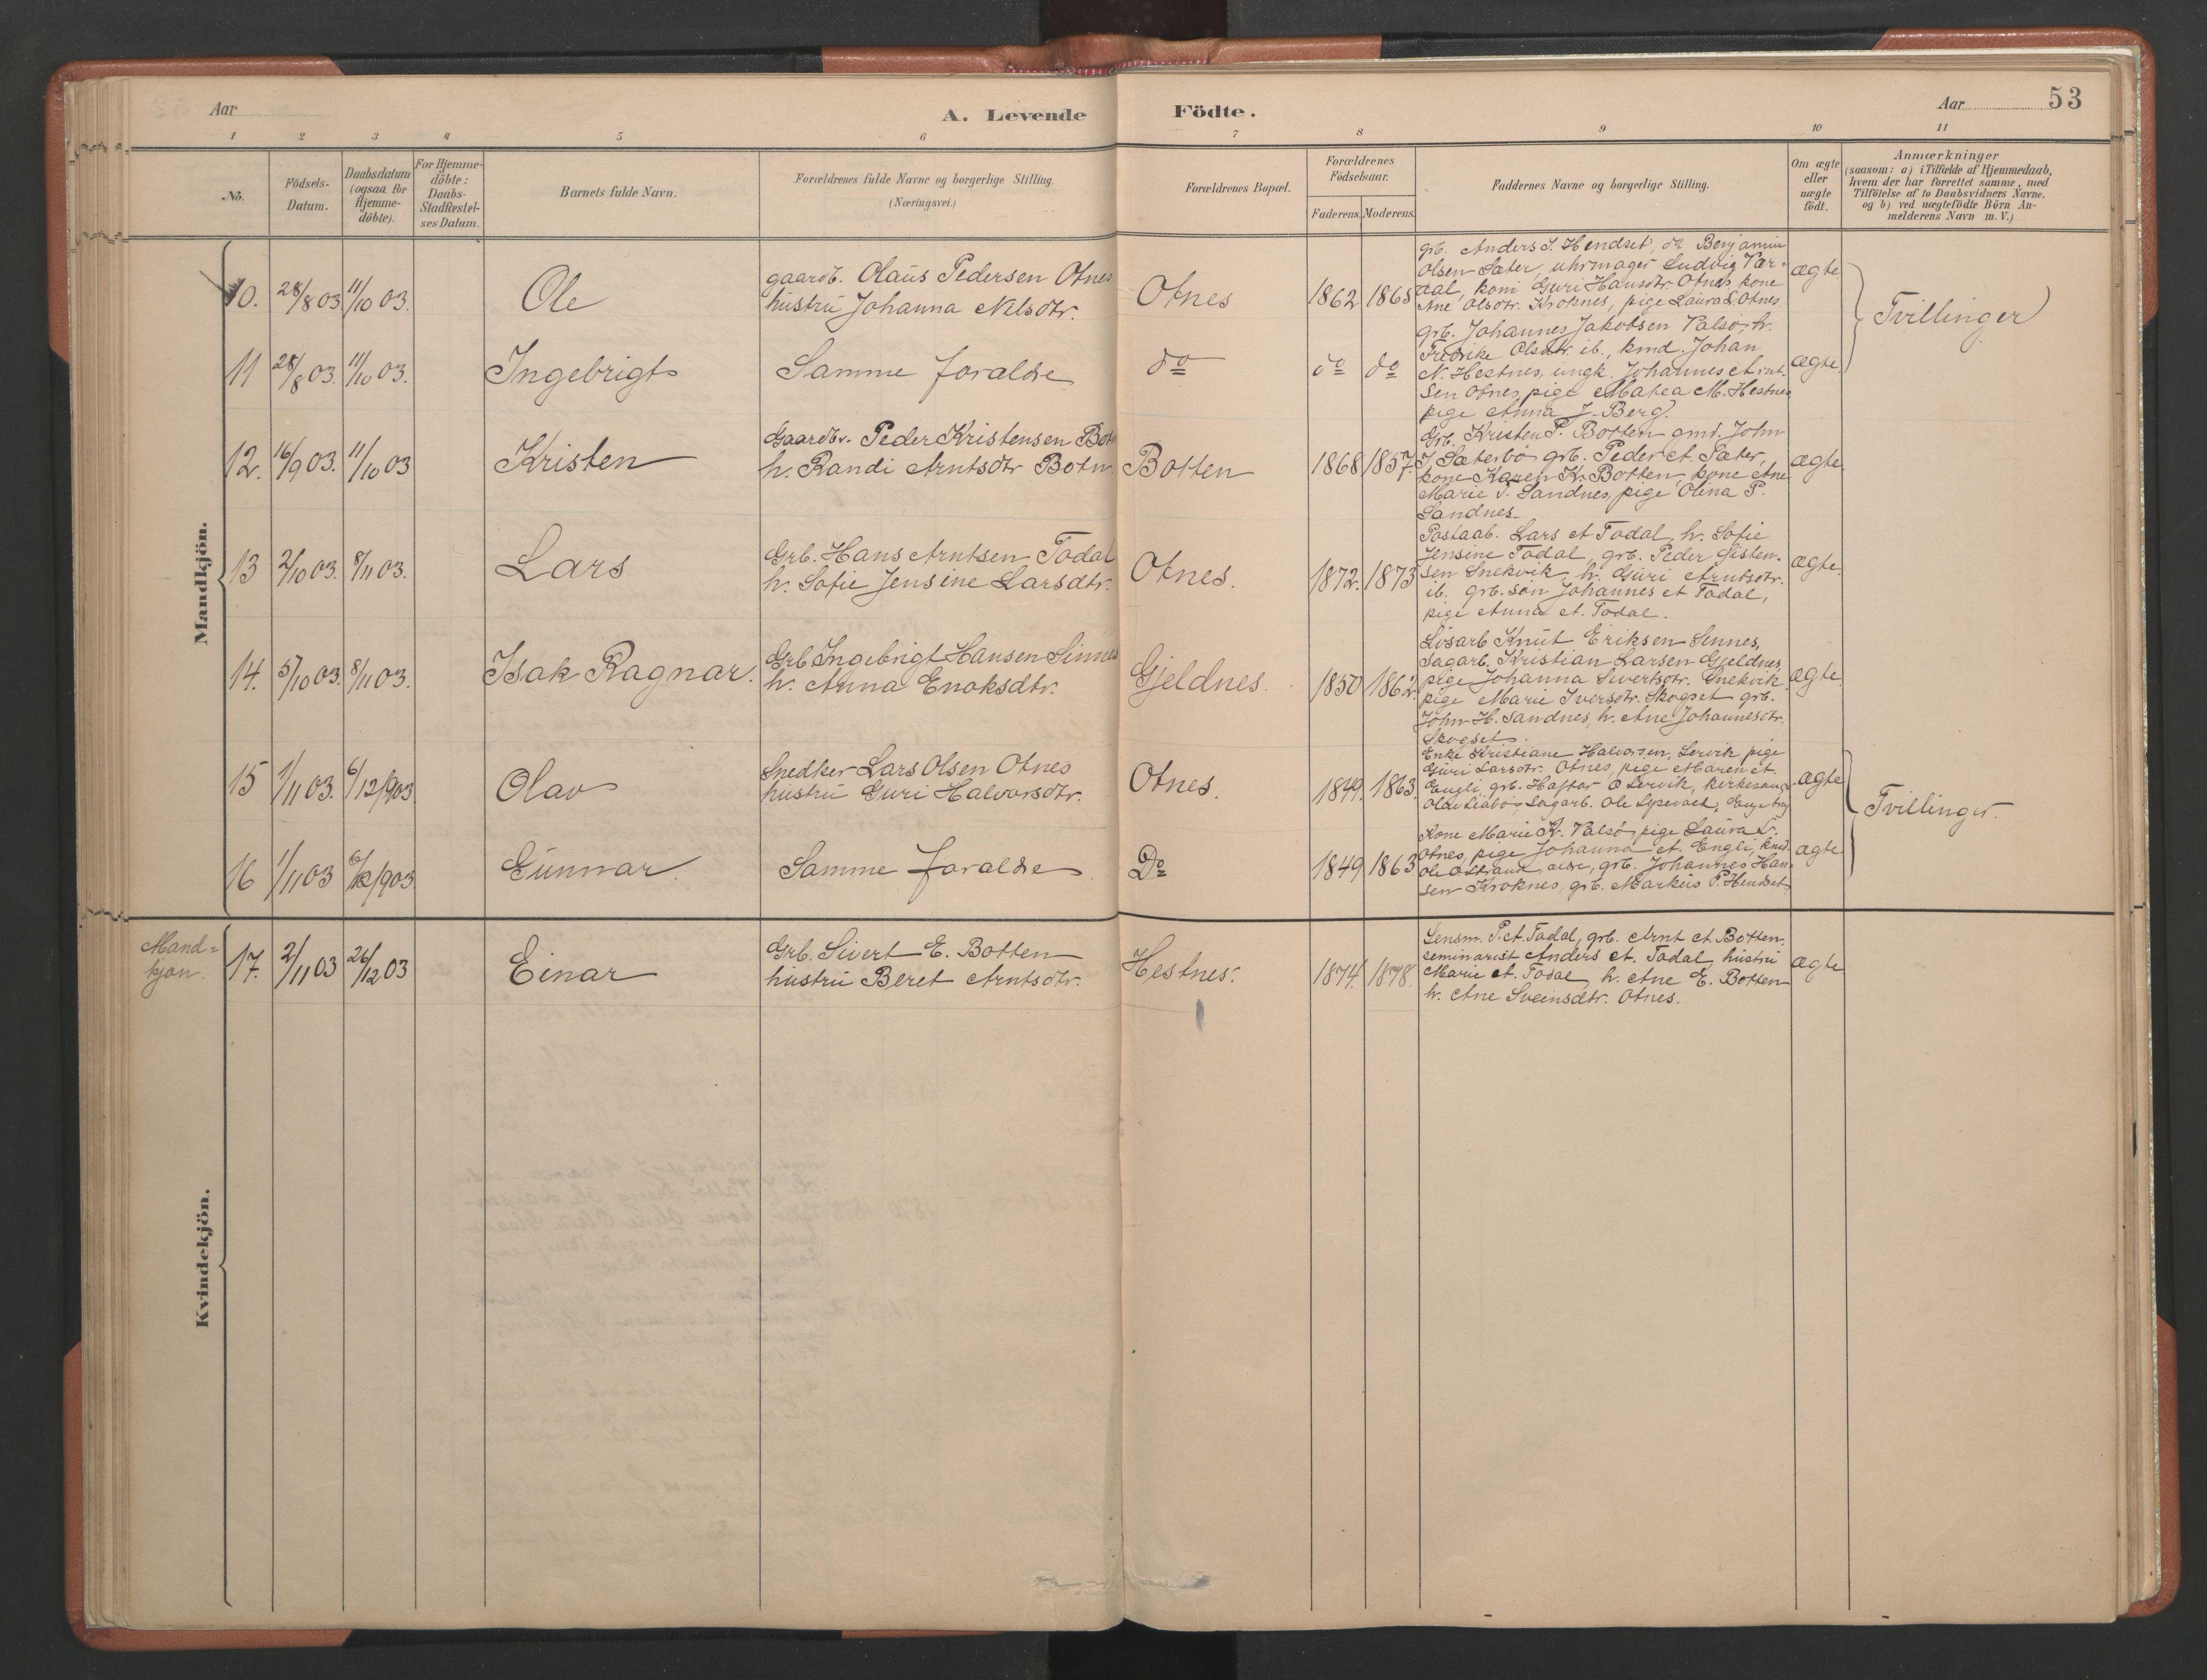 Aar
A. Levende
Födte.
Aar
53
1 2 3 4 5 6 7 8 9 10 11
No.
Födsels-
Datum.
Daabsdatum
(ogsaa for
Hjemme-
döbte).
For Hjemme-
döbte:
Daabs-
Stadfæstel-
ses Datum.
Barnets fulde Navn.
Forældrenes fulde Navne og borgerlige Stilling.
(Næringsvei.)
Forældrenes Bopæl.
Forældrenes
Födselsaar.
Faderens. Moderens.
Faddernes Navne og borgerlige Stilling.
Om ægte
eller
uægte
födt.
Anmærkninger
(saasom: a) i Tilfælde af Hjemmedaab,
hvem der har forrettet samme, med
Tilföielse af to Daabsvidners Navne.
og b) ved uægtefödte Börn An-
melderens Navn m. V.)
Mandkjön.
10. 28/8 03. 11/10 03.
Ole
gaardb. Olaus Pedersen Otnes
hustru Johanna Nilsdtr.
Otnes
1862 1865
grb. Anders J. Hendset, dr Benjamin
Olsen Sæter, uhrmager Ludvig Vær-
dal, koni Guri Hansdtr. Otnes, kone
Ane Olsdtr. Kroknes, pige Laura L. Otnes.
ægte
Tvillinger
11 28/8 03. 11/10 03.
Ingebrigt
Samme foraldre
do
do do
grb. Johannes Jakobsen Valsö, h.
Fredrike Olsdtr. ib., kmd. Johan
N. Hestnes, ungk. Johannes Arnt-
sen Otnes, pige Matea M. Hestnes
pige Anna J. Berg.
ægte.
12. 16/9 03. 11/10 03
Kristen
Gaardbr. Peder Kristensen Botn
h. Randi Arntsdtr Botn.
Botten
1868 1857.
Grb. Kristen P. Botten gmd. John
J. Sæterbö grb. Peder A. Sæter,
kone Karen K. Botten, kone Ane
Marie P. Sandnes, pige Olina P.
Sandnes.
ægte.
13 2/10 03. 8/11 03.
Lars
Grb. Hans Arntsen Todal
h. Sofie Jensine Larsdtr.
Otnes.
1872. 1873
Postaab. Lars A Todal, h. Sofie
Jensine Todal, grb. Peder Gisten-
sen Snekvik, h. Guri Arntsdtr.
ib. grb.sön Johannes A Todal,
pige Anna A. Todal.
ægte.
14. 5/10 03. 8/11 03.
Isak Ragnar.
Grb Ingebrigt Hansen Sinnes
h. Anna Enoksdtr.
Gjeldnes.
1850 1862.
Lösarb Knut Eriksen Sennes,
Sagarb. Kristian Larsen Gjeldnes,
pige Johanna Sivertsdtr. Snekvik
pige Marie Iversdtr. Skogset grb.
John H. Sandnes, h. Ane Johannesdtr.
Skogset.
ægte.
15 1/11 03. 6/12/903
Olav
Snedker Lars Olsen Otnes
hustru Guri Halvorsdtr.
Otnes.
1849. 1863.
Enke Kristiane Halvorsen, Lervik pige
Guri Larsdtr. Otnes, pige Maren A.
Engli, grb. Haftor O Lervik, kirkesang.
Olav Liabö, Sagarb. Ole
ægte
Tvillinger.
16 1/11 03 6/12/903.
Gunnar.
Samme foraldre
Do
1849 1863
Kone Marie K. Valsö, pige Laura L.
Otnes, pige Johanna A. Engli, kmd.
Ole O Strand, grb. Johannes Han-
sen Kroknes, grb. Markus P. Hendset.
ægte
Mand=
kjön.
17. 2/11 03 26/12 03
Einar
Grb. Sivert E. Botten
hustru Beret Arntsdtr.
Hestnes.
1874. 1878.
Lensm. P. A. Todal, grb. Arnt A. Botten,
seminarist Anders A. Todal, hustru
Marie A. Todal, h. Ane E. Botten
h. Ane Sveinsdtr. Otnes.
ægte
Kvindekjön.